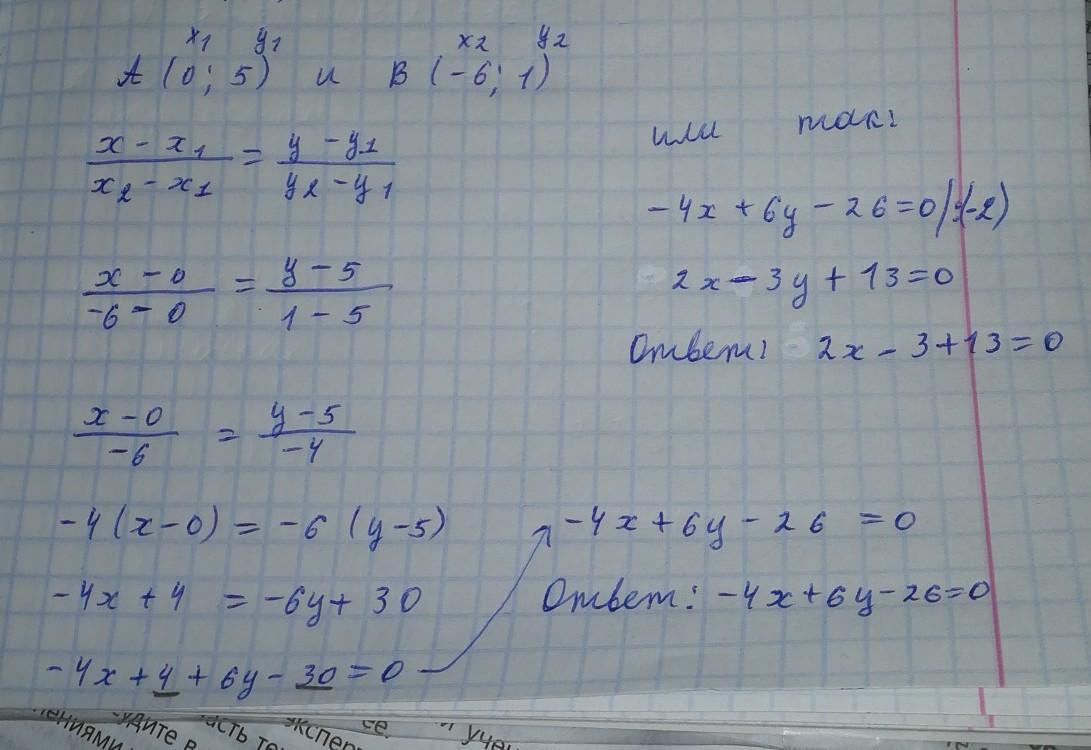 x1 y1 x2 y2
A (0; 5) и B (-6; 1)
x - x1 / x2 - x1 = y - y1 / y2 - y1
x - 0 / -6 - 0 = y - 5 / 1 - 5
x - 0 / -6 = y - 5 / -4
-4 (x-0) = -6 (y-5)
-4x + 4 = -6y + 30
-4x + 4 + 6y - 30 = 0
-4x + 6y - 26 = 0
Ответ: -4x+6y-26=0
или так:
-4x + 6y - 26 = 0 |:(-2)
2x - 3y + 13 = 0
Ответ: 2x - 3 + 13 = 0